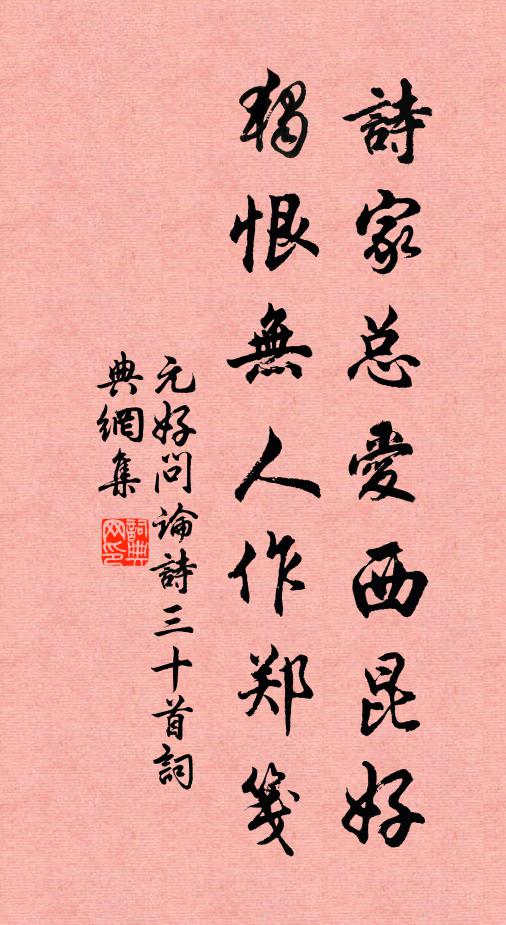 詩家总愛西昆好
獨恨無人作郑箋
元好问論詩三十首詞
典網集
詞典
网印